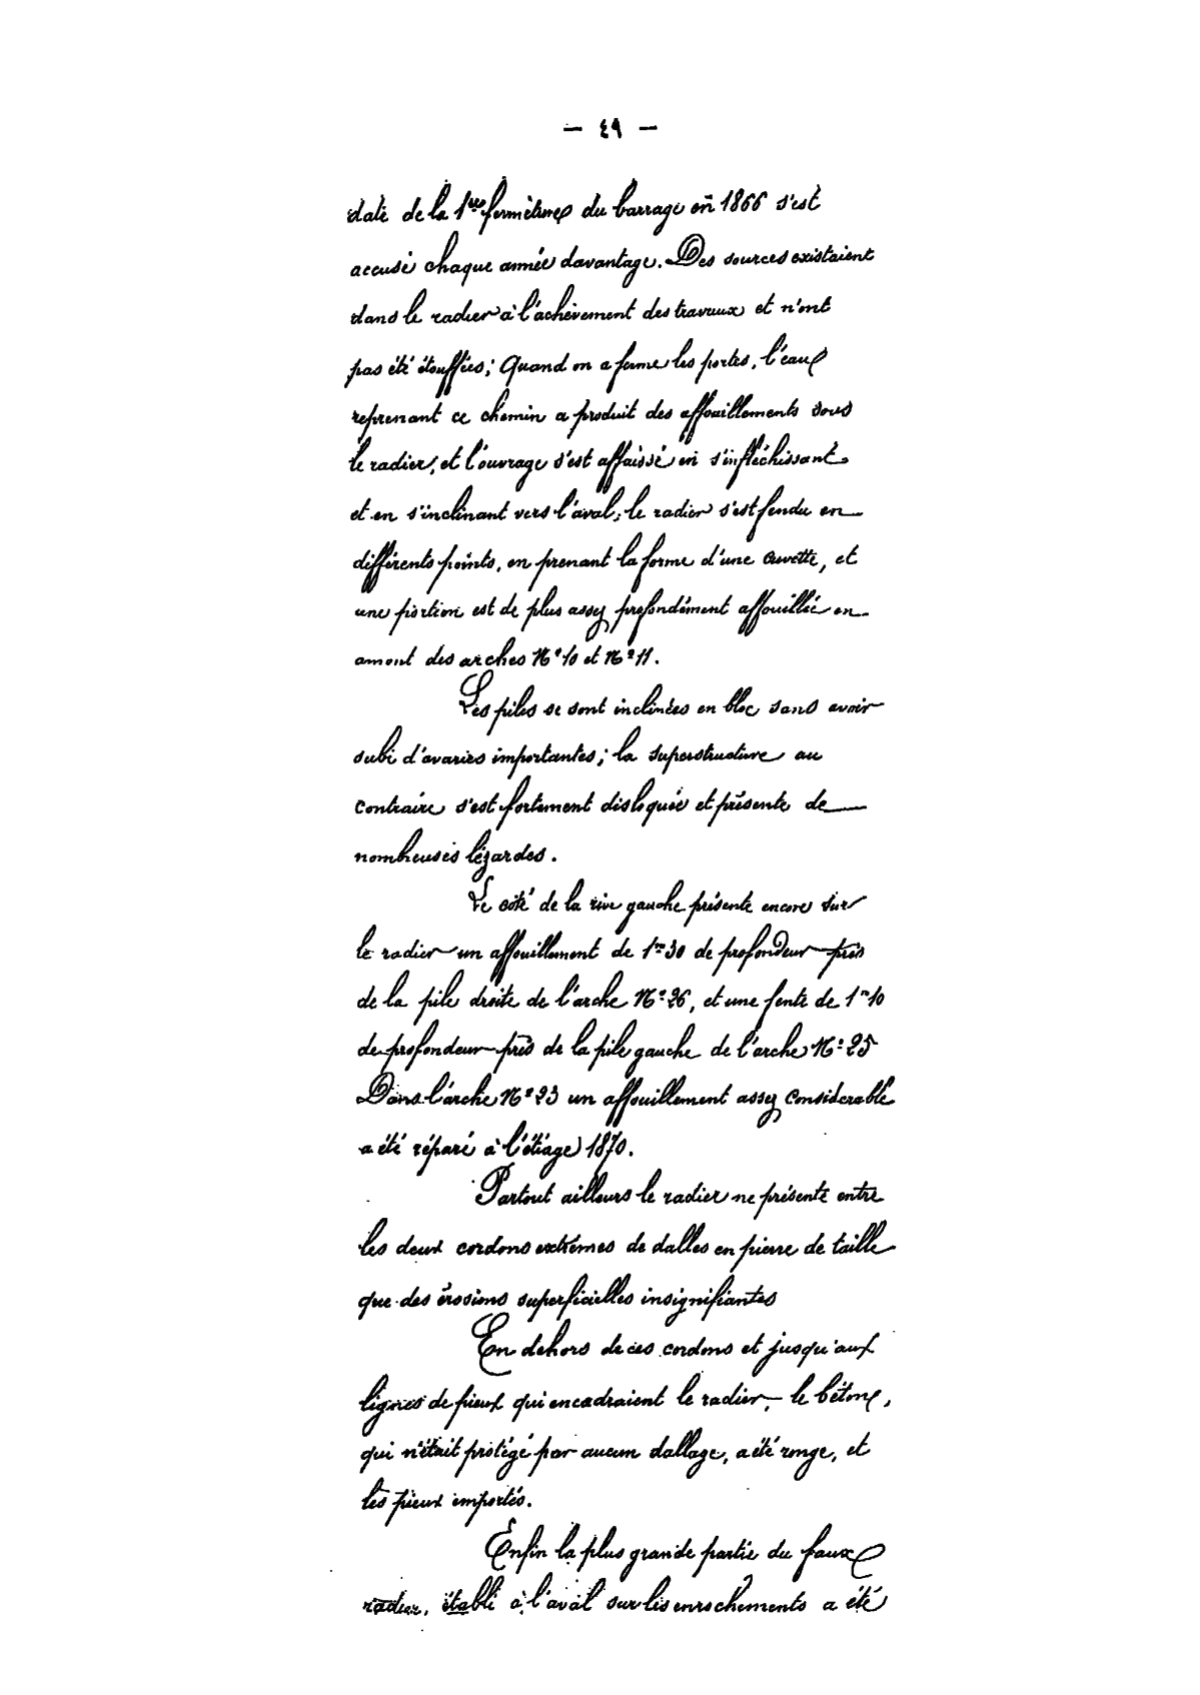 — ٤٩ —
date de la 1re fermeture du barrage en 1866 s'est
accusé chaque année davantage. Des sources existaient
dans le radier à l'achèvement des travaux et n'ont
pas été étouffées; Quand on a fermé les portes, l'eau
reprenant ce chemin a produit des affouillements sous
le radier, et l'ouvrage s'est affaissé en s'infléchissant
et en s'inclinant vers l'aval, le radier s'est fendu en
différents points, en prenant la forme d'une cuvette, et
une portion est de plus assez profondément affouillée en
amont des arches No 10 et No 11.
Les piles se sont inclinées en bloc sans avoir
subi d'avaries importantes; la superstructure au
contraire s'est fortement disloquée et présente de
nombreuses lézardes.
Le côté de la rive gauche présente encore sur
le radier un affouillement de 1m30 de profondeur près
de la pile droite de l'arche No 26, et une fente de 1m10
de profondeur près de la pile gauche de l'arche No 25
Dans l'arche No 23 un affouillement assez considerable
a été réparé à l'étiage 1870.
Partout ailleurs le radier ne présente entre
les deux cordons extrêmes de dalles en pierre de taille
que des érosions superficielles insignifiantes
En dehors de ces cordons et jusqu'aux
lignes de pieux qui encadraient le radier, le béton,
qui n'était protégé par aucun dallage, a été rongé, et
les pieux emportés.
Enfin la plus grande partie du faux
radier, établi à l'aval sur les enrochements a été